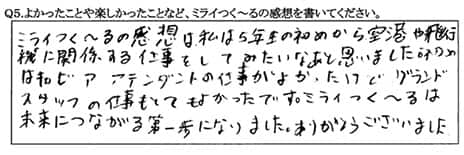 Q5.よかったことや楽しかったことなど、ミライつく〜るの感想を書いてください。
ミライつく〜るの感想は私は5年生の初めから空港や飛行
機に関係する仕事をしてみたいなあと思いました初め
は キャビアアテンダントの仕事がよかったけどグランド
スタッフの仕事もとてもよかったです。ミライつく〜るは
未来につながる第一歩になりました。ありがとうございました